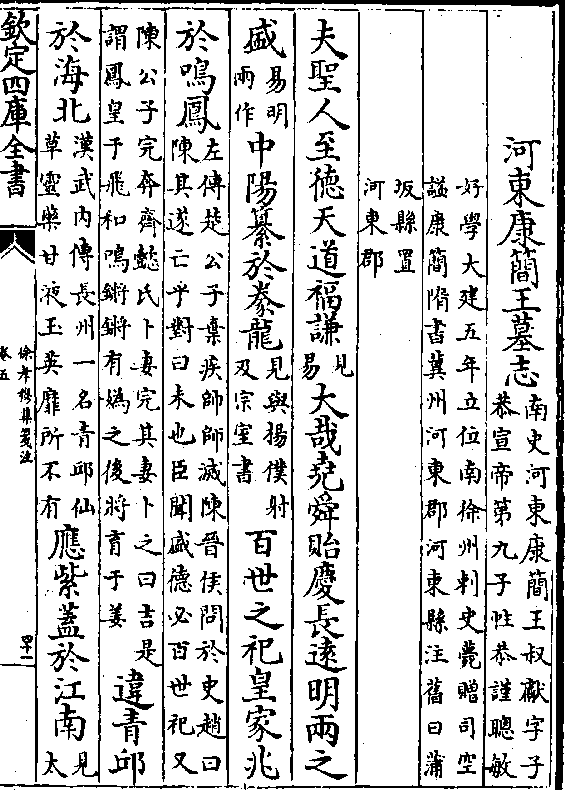 河東康簡王墓志
南史河東康簡王叔獻字子
恭宣帝第九子性恭謹聰敏
好學大建五年立位南徐州刺史薨贈司空
諡康簡隋書冀州河東郡河東縣注舊曰蒲
坂縣置
河東郡
夫聖人至德天道福謙
見
易
大哉堯舜貽慶長遠明兩之
盛
易明
兩作
中陽纂於豢龍
見與揚僕射
及宗室書
百世之祀皇家兆
於鳴鳳
左傳楚公子棄疾師師滅陳晉侯問於史趙曰
陳其遂亡乎對曰未也臣聞盛德必百世祀又
陳公子完奔齊懿氏卜妻完其妻卜之曰吉是
謂鳳皇于飛和鳴鏘鏘有嬀之後將育于姜
違青邱
於海北
漢武內傳長州一名青邱仙
草靈藥甘液玉英靡所不有
應紫蓋於江南
見
太
欽定四庫全書
徐孝穆集箋注
卷五
四十一